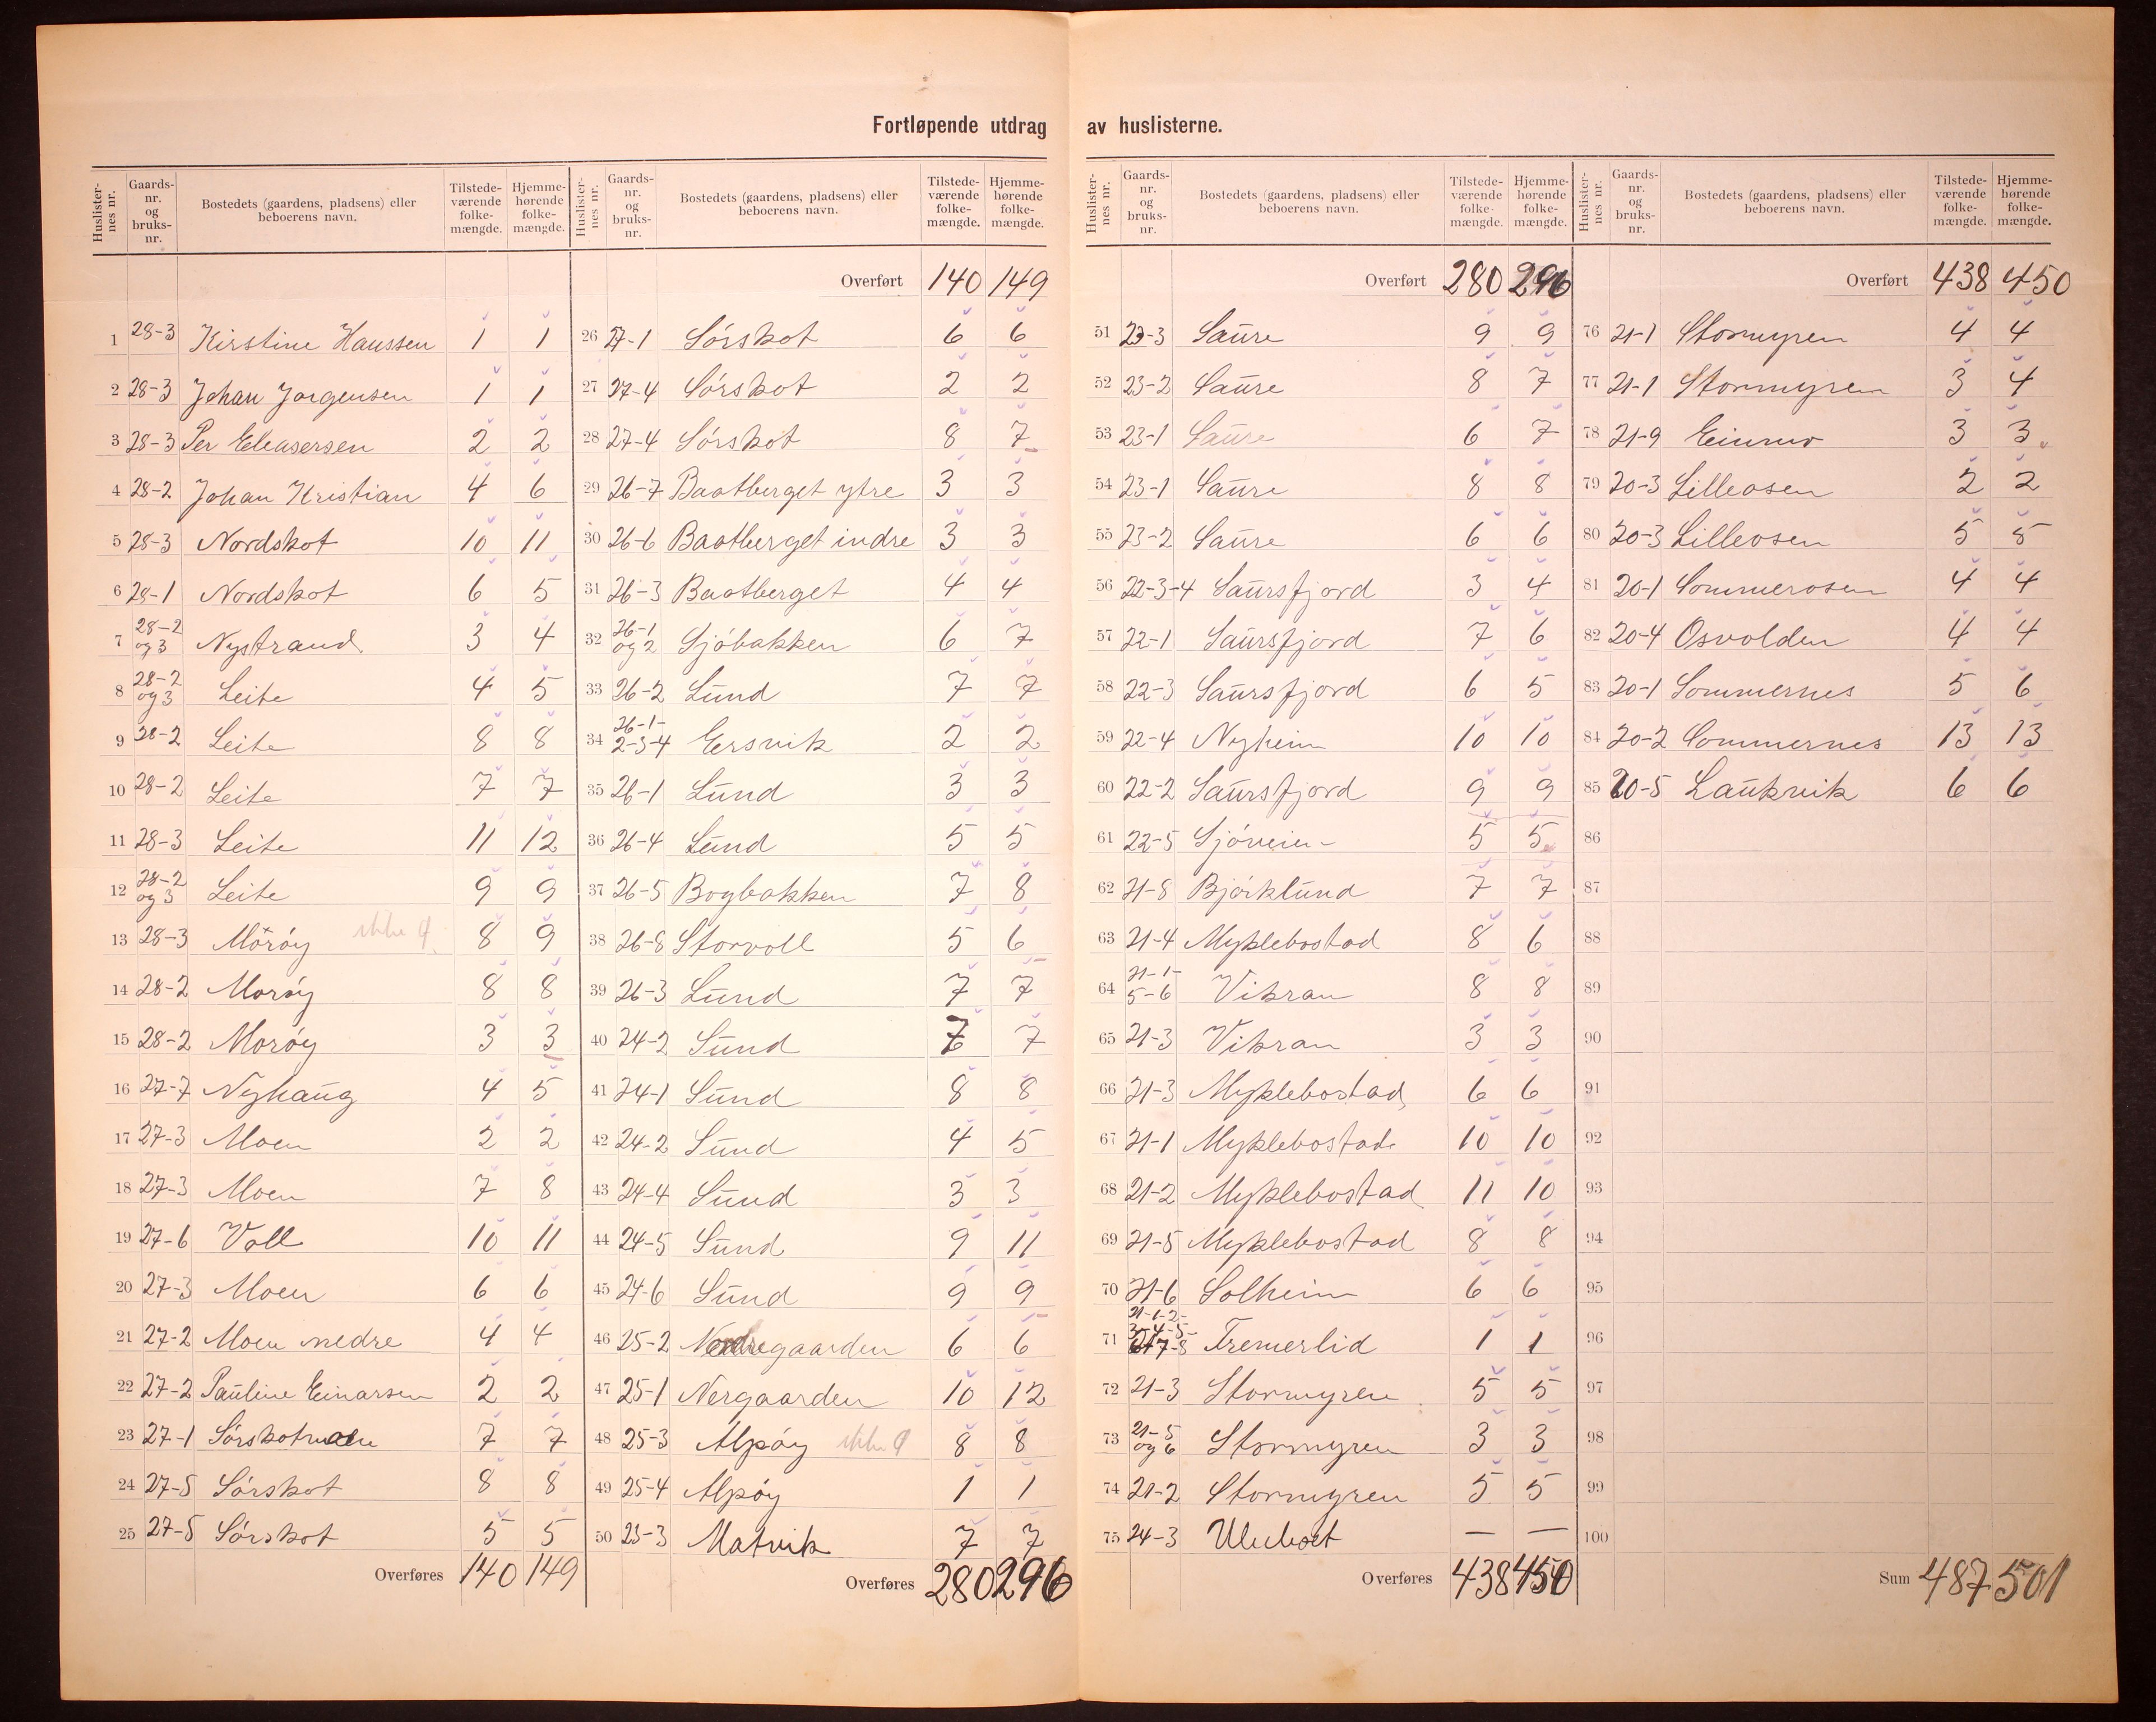 Fortløpende utdrag av huslisterne.
Huslister-nes nr. Gaards-nr. og bruks-nr. Bostedets (gaardens, pladsens) eller beboerens navn. Tilstede-værende folke-mængde. Hjemme-hørende folke-mængde.
1 28-3 Kirstine Hanssen 1 1
2 28-3 Johan Jorgensen 1 1
3 28-3 Per Eleasersen 2 2
4 28-2 Johan Kristian 4 6
5 28-3 Nordskot 10 11
6 28-1 Nordskot 6 5
7 28-2 og 3 Nystrand 3 4
8 28-2 og 3 Leite 4 5
9 28-2 Leite 8 8
10 28-2 Leite 7 7
11 28-3 Leite 11 12
12 28-2 og 3 Leite 9 9
13 28-3 Moröy 8 9
14 28-2 Moröy 8 8
15 28-2 Moröy 3 3
16 27-7 Nyhaug 4 5
17 27-3 Moen 2 2
18 27-3 Moen 7 8
19 27-6 Voll 10 11
20 27-3 Moen 6 6
21 27-2 Moen nedre 4 4
22 27-2 Pauline Einarsen 2 2
23 27-1 Sörskotmoen 7 7
24 27-5 Sörskot 8 8
25 27-5 Sörskot 5 5
Overføres 140 149
Huslister-nes nr. Gaards-nr. og bruks-nr. Bostedets (gaardens, pladsens) eller beboerens navn. Tilstede-værende folke-mængde. Hjemme-hørende folke-mængde.
Overført 140 149
26 27-1 Sörskot 6 6
27 27-4 Sörskot 2 2
28 27-4 Sörskot 8 7
29 26-7 Baatberget ytre 3 3
30 26-6 Baatberget indre 3 3
31 26-3 Baatberget 4 4
32 26-1 og 2 Sjöbakken 6 7
33 26-2 Lund 7 7
34 26-1-2-3-4 Eersvik 2 2
35 26-1 Lund 3 3
36 26-4 Lund 5 5
37 26-5 Bogbakken 7 8
38 26-8 Storvoll 5 6
39 26-3 Lund 7 7
40 24-2 Sund 7
41 24-1 Sund 8 8
42 24-2 Sund 4 5
43 24-4 Sund 3 3
44 24-5 Sund 9 11
45 24-6 Sund 9 9
46 25-2 Nordregaarden 6 6
47 25-1 Nergaarden 10 12
48 25-3 Alpöy 8 8
49 25-4 Alpöy 1 1
50 23-3 Matvik 7 7
Overføres 280 296
Huslister-nes nr. Gaards-nr. og bruks-nr. Bostedets (gaardens, pladsens) eller beboerens navn. Tilstede-værende folke-mængde. Hjemme-hørende folke-mængde.
Overført 280 296
51 23-3 Saure 9 9
52 23-2 Saure 8 7
53 23-1 Saure 6 7
54 23-1 Saure 8 8
55 23-2 Saure 6 6
56 22-3-4 Saursfjord 3 4
57 22-1 Saursfjord 7 6
58 22-3 Saursfjord 6 5
59 22-4 Nyheim 10 10
60 22-2 Saursfjord 9 9
61 22-5 Sjöveien 5 5
62 21-8 Björklund 7 7
63 21-4 Myklebostad 8 6
64 21-1-5-6 Vikran 8 8
65 21-3 Vikran 3 3
66 21-3 Myklebostad 6 6
67 21-1 Myklebostad 10 10
68 21-2 Myklebostad 11 10
69 21-5 Myklebostad 8 8
70 21-6 Solheim 6 6
71 21-1-2-3-4-5- Tremerlid 1 1
72 21-3 Stormyren 5 5
73 21-5 og 6 Stormyren 3 3
74 21-2 Stormyren 5 5
75 24-3 — —
Overføres 438 450
Huslister-nes nr. Gaards-nr. og bruks-nr. Bostedets (gaardens, pladsens) eller beboerens navn. Tilstede-værende folke-mængde. Hjemme-hørende folke-mængde.
Overført 438 450
76 21-1 Stormyren 4 4
77 21-1 Stormyren 3 4
78 21-9 Einmo 3 3
79 20-3 Lilleosen 2 2
80 20-3 Lilleosen 5 5
81 20-1 Sommerosen 4 4
82 20-4 Osvolden 4 4
83 20-1 Sommernes 5 6
84 20-2 Sommernes 13 13
85 20-5 Laukvik 6 6
86
87
88
89
90
91
92
93
94
95
96
97
98
99
100
Sum 487 501